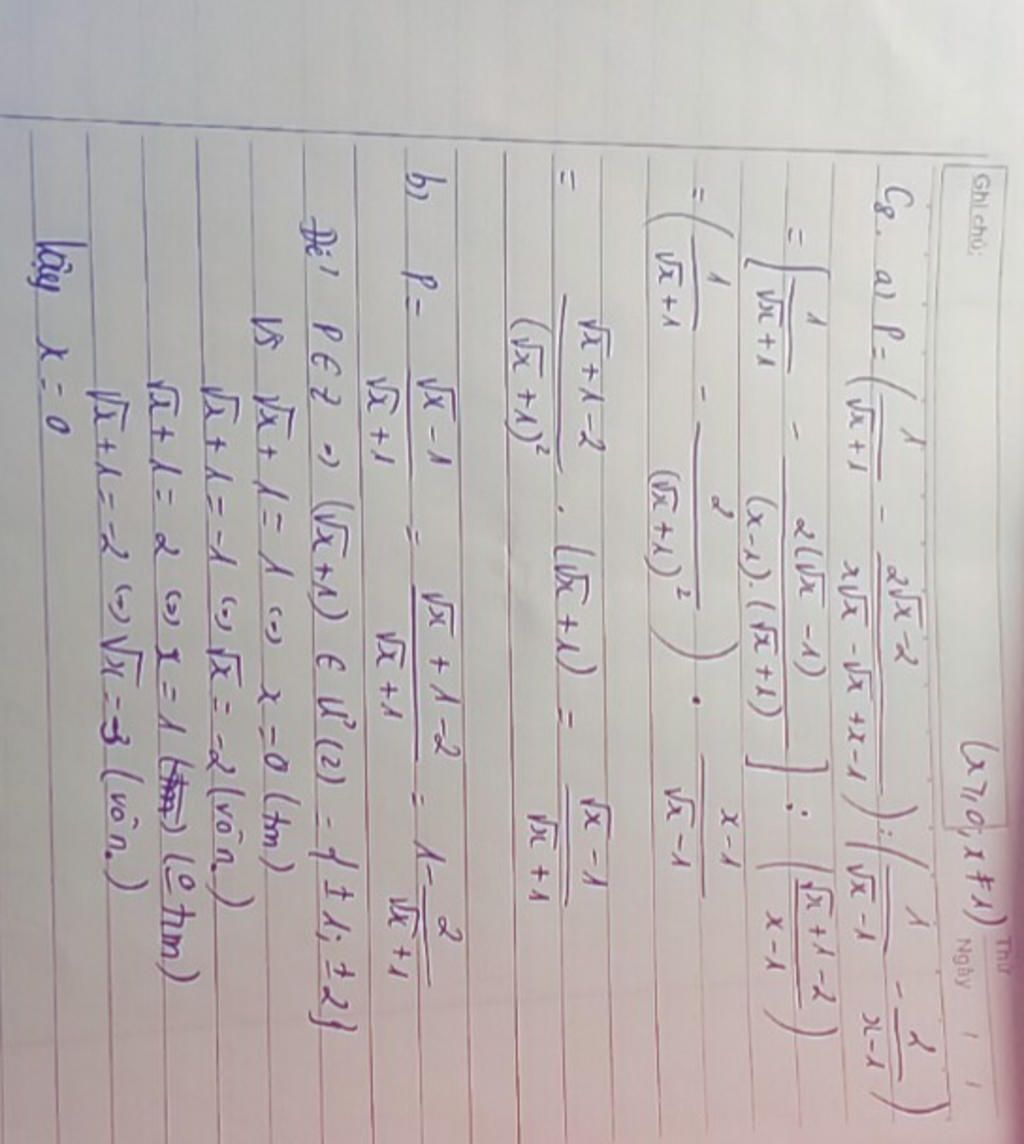 Ghi chú:
Thứ
Ngày / /
(x ≥ 0; x ≠ 1)
C8. a) P = (1/(√x + 1) - (2√x - 2)/(x√x - √x + x - 1)) : (1/(√x - 1) - 2/(x - 1))
= [1/(√x + 1) - 2(√x - 1)/((x - 1).(√x + 1))] : ((√x + 1 - 2)/(x - 1))
= (1/(√x + 1) - 2/(√x + 1)²) . (x - 1)/(√x - 1)
= (√x + 1 - 2)/(√x + 1)² . (√x + 1) = (√x - 1)/(√x + 1)
b) P = (√x - 1)/(√x + 1) = (√x + 1 - 2)/(√x + 1) = 1 - 2/(√x + 1)
Để P ∈ Z => (√x + 1) ∈ Ư(2) = {±1; ±2}
Vs √x + 1 = 1 <=> x = 0 (tm)
√x + 1 = -1 <=> √x = -2 (vô n.)
√x + 1 = 2 <=> x = 1 (tm) (0 tm)
√x + 1 = -2 <=> √x = -3 (vô n.)
Vậy x = 0